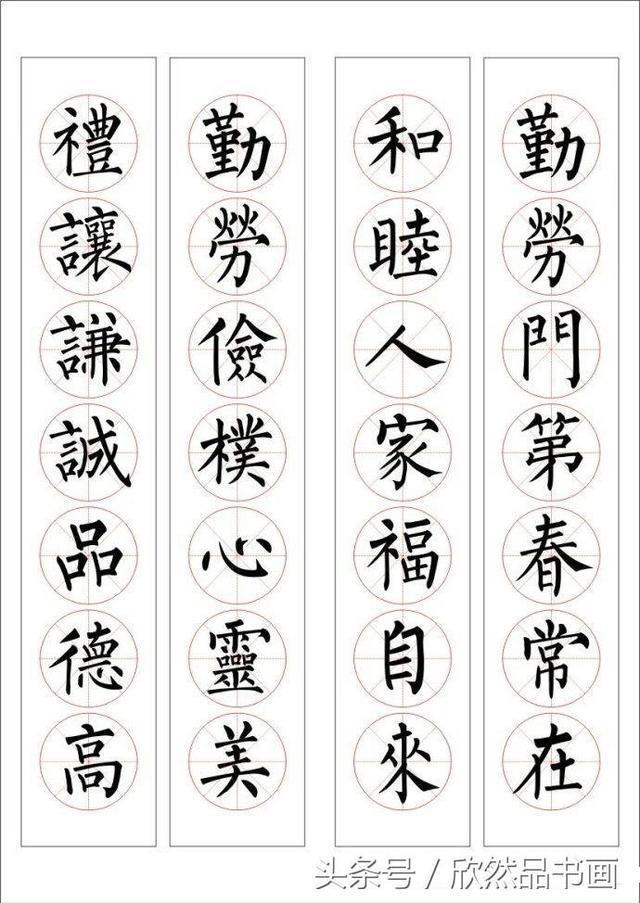 勤勞門第春常在
和睦人家福自來
勤勞儉樸心靈美
禮讓謙誠品德高
头条号/欣然品书画